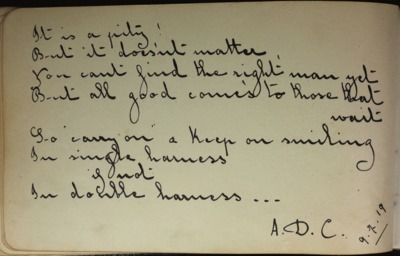 It is a pity!
But it doesn't matter,
You cant find the right man yet
But all good comes to those that
wait
So "carry on" & Keep on smiling
In single harness
if not
In double harness...
A.D.C.
9.7.19